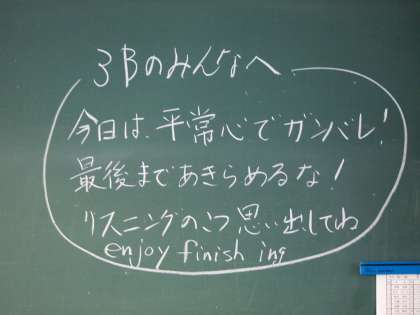 3Bのみんなへ
今日は、平常心でガンバレ!
最後まであきらめるな!
リスニングのこつ思い出してね
enjoy finish ing